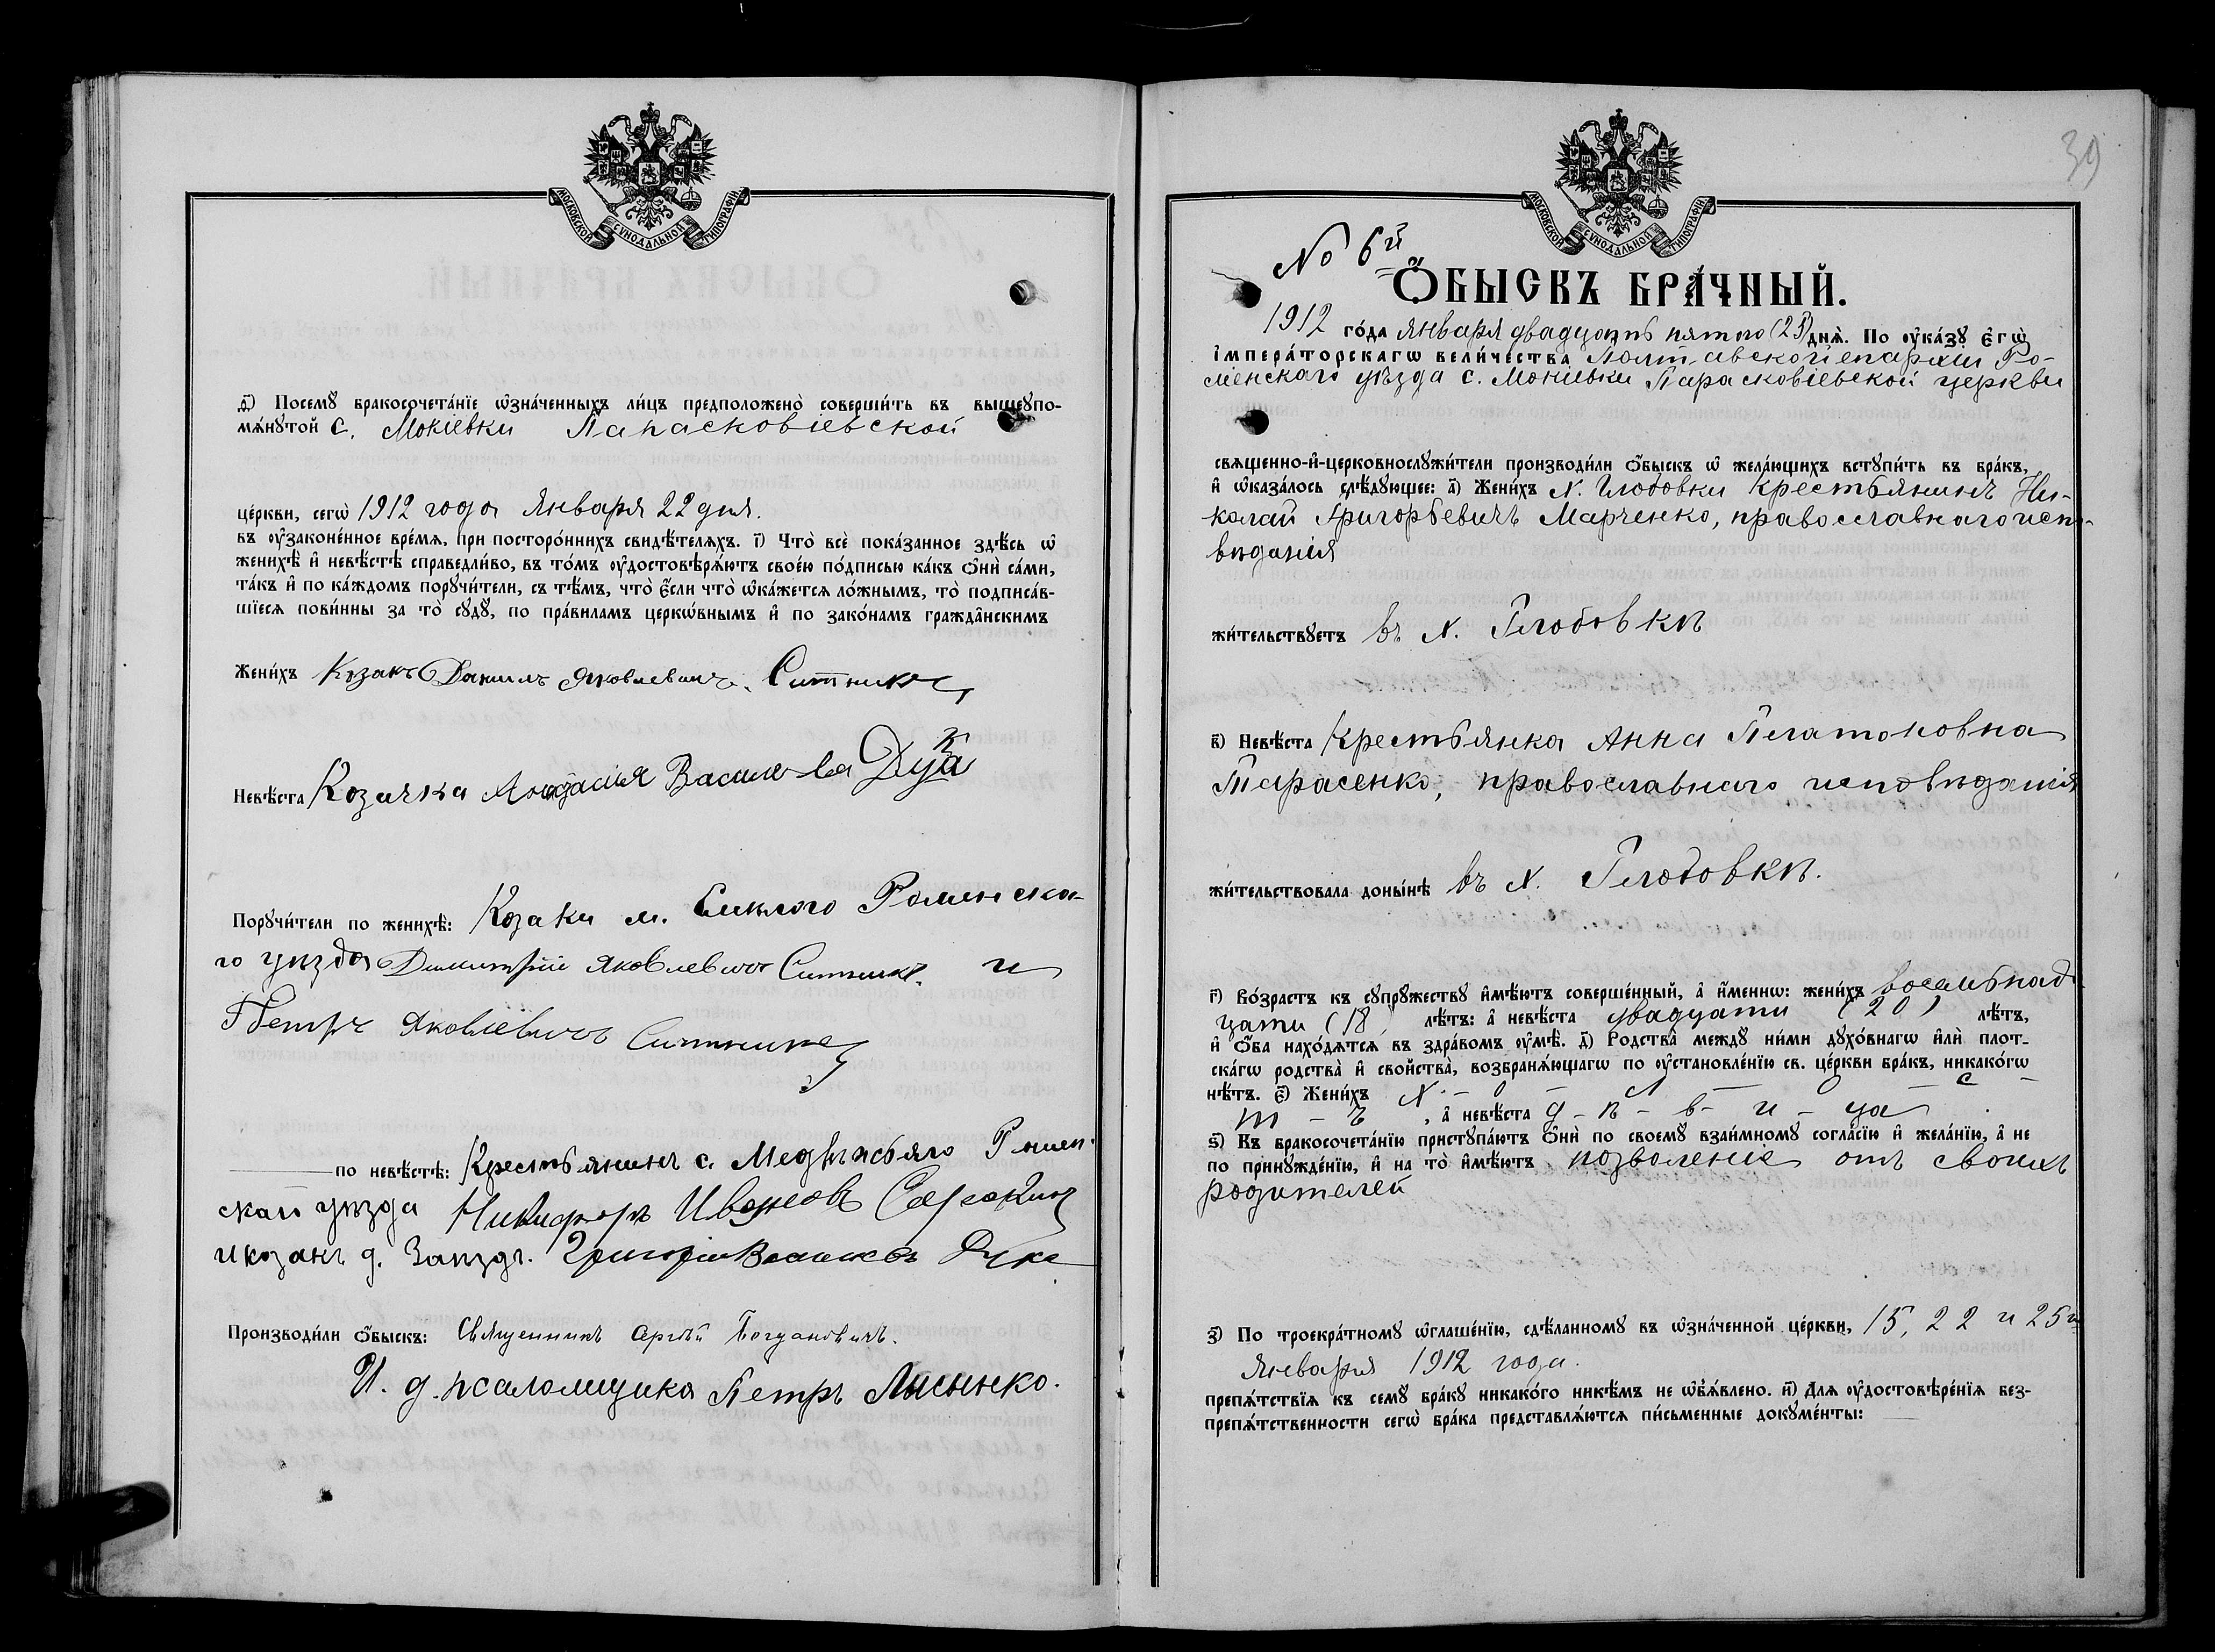 МОСКОВСКОЙ СѴНОДАЛЬНОЙ ТИПОГРАФІИ
ѳ҃) Посемꙋ бракосочета́нїе ѡ҆зна́ченныхъ ли́цъ предположено̀ соверши́ть въ вышеꙋпо-
мѧ́нꙋтой с. Мокіевки Парасковіевской
це́ркви, сегѡ̀ 1912 года Января 22 дня.
въ ᲂу҆законе́нное вре́мѧ, при посторо́ннихъ свидѣ́телѧхъ. і҃) Что̀ всѐ пока́занное здѣ́сь ѡ҆
женихѣ̀ и҆ невѣ́стѣ справедли́во, въ то́мъ ᲂу҆достовѣрѧ́ютъ свое́ю по́дписью ка́къ ѻ҆нѝ са́ми,
та́къ и҆ по ка́ждомъ порꙋчи́тели, съ тѣ́мъ, что̀ є҆́сли что̀ ѡ҆ка́жетсѧ ло́жнымъ, то̀ подписа́в-
шїесѧ пови́нны за то̀ сꙋдꙋ̀, по пра́виламъ церкѡ́внымъ и҆ по зако́намъ гражда̂нскимъ
Жени́хъ Козакъ Данилъ Яковлевичъ Ситникъ
Невѣ́ста Козачка Васильева Дука
Порꙋчи́тели по женихѣ̀: Козаки м. Смѣлого Роменска-
го уѣзда Димитрій Яковлевичъ Ситникъ и
Петръ Яковлевичъ Ситникъ
по невѣ́стѣ: Крестьянинъ с. Медвѣжьяго Ромен-
скаго уѣзда Никифоръ Ивановъ
и козакъ д. Заѣзда. Григорій Дука
Производи́ли ѻ҆́быскъ: Священникъ Сергѣй Богдановичъ.
И. д. псаломщика Петръ Лысенко.
39
МОСКОВСКОЙ СѴНОДАЛЬНОЙ ТИПОГРАФІИ
№ 6й
Ѻ҆́БЫСКЪ БРА́ЧНЫЙ.
1912 го́да января двадцать пятого (25) днѧ̀. По ᲂу҆ка́зꙋ є҆гѡ̀
і҆мпера́торскагѡ вели́чества Полтавской епархіи Ро-
менскаго уѣзда с. Мокіевки Парасковіевской церкви
свѧщенно-и҆-церковнослꙋжи́тели производи́ли ѻ҆́быскъ ѡ҆ жела́ющихъ встꙋпи́ть въ бра́къ,
и҆ ѡ҆каза́лось слѣ́дꙋющее: а҃) Жени́хъ х. Глобовки крестьянинъ Ни-
колай Григорьевичъ Марченко, православнаго испо-
вѣданія
жи́тельствꙋетъ въ х. Глобовкѣ
в҃) Невѣ́ста Крестьянка Анна Платоновна
Тарасенко, православнаго исповѣданія
жи́тельствовала доны́нѣ въ х. Глобовкѣ.
г҃) Во́зрастъ къ сꙋпрꙋ́жествꙋ и҆мѣ́ютъ соверше́нный, а҆ и҆́меннѡ: жени́хъ восемьнад-
цати (18) лѣ́тъ: а҆ невѣ́ста двадцати (20) лѣ́тъ,
и҆ ѻ҆́ба нахо́дѧтсѧ въ здра́вомъ ᲂу҆мѣ̀. д҃) Родства̀ междꙋ̀ ни́ми дꙋхо́внагѡ и҆лѝ плот-
ска́гѡ родства̀ и҆ сво́йства̀, возбранѧ́ющагѡ по ᲂу҆становле́нїю св. це́ркви бра́къ, никако́гѡ
нѣ́тъ. є҃) Жени́хъ х – о – л – о – с –
т – ъ , а҆ невѣ́ста д – ѣ – в – и – ца .
ѕ҃) Къ бракосочета́нїю пристꙋпа́ютъ ѻ҆нѝ по своемꙋ̀ взаи́мномꙋ согла́сїю и҆ жела́нїю, а҆ не
по принꙋжде́нїю, и҆ на то̀ и҆мѣ́ютъ позволеніе отъ своихъ
родителей
з҃) По троекра́тномꙋ ѡ҆глаше́нїю, сдѣ́ланномꙋ въ ѡ҆зна́ченной це́ркви, 15, 22 и 25го
Января 1912 года.
препѧ́тствїѧ къ семꙋ̀ бра́кꙋ никако́гѡ никѣ́мъ не ѡ҆б̾ѧ́влено. и҃) Длѧ̀ ᲂу҆достовѣре́нїѧ без-
препѧ́тственности сегѡ̀ бра́ка представлѧ́ютсѧ пи́сьменные докꙋме́нты: